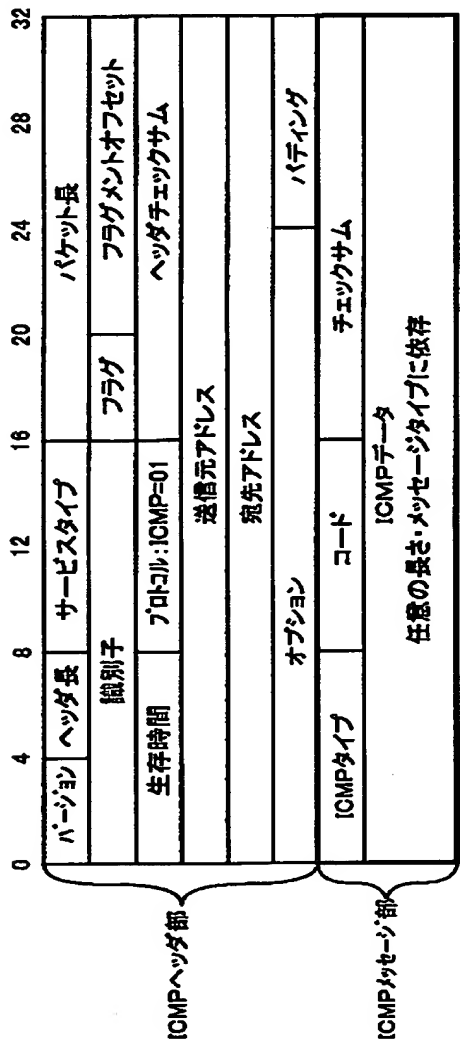 0 4 8 12 16 20 24 28 32
バージョン ヘッダ長 サービスタイプ パケット長
識別子 フラグ フラグメントオフセット
生存時間 プロトコル:ICMP=01 ヘッダチェックサム
送信元アドレス
宛先アドレス
オプション パディング
ICMPヘッダ部
ICMPタイプ コード チェックサム
ICMPデータ
任意の長さ・メッセージタイプに依存
ICMPメッセージ部